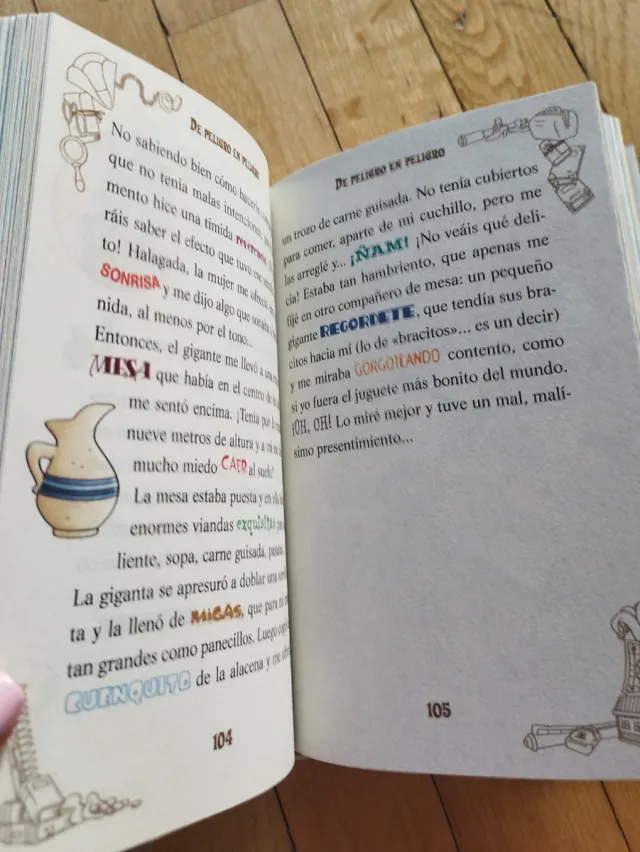 DE PELIGRO EN PELIGRO
No sabiendo bien cómo
que no tenía malas intenciones,
mento hice una tímida reverencia
ráis saber el efecto que tuvo ese
to! Halagada, la mujer me ofreció
SONRISA y me dijo algo que
nida, al menos por el tono...
Entonces, el gigante me llevó a una
MESA que había en el centro de
me sentó encima. ¡Tenía por
nueve metros de altura y a mí me
mucho miedo CAER al suelo!
La mesa estaba puesta y en
enormes viandas exquisitas:
liente, sopa, carne guisada,
La giganta se apresuró a doblar una
ta y la llenó de MIGAS, que para mí
tan grandes como panecillos. Luego
CUENQUITO de la alacena y me
104
DE PELIGRO EN PELIGRO
un trozo de carne guisada. No tenía cubiertos
para comer, aparte de mi cuchillo, pero me
las arreglé y... ¡ÑAM! ¡No veáis qué deli-
cia! Estaba tan hambriento, que apenas me
fijé en otro compañero de mesa: un pequeño
gigante REGORDETE, que tendía sus bra-
citos hacia mí (lo de «bracitos»... es un decir)
y me miraba GORGOTEANDO contento, como
si yo fuera el juguete más bonito del mundo.
¡OH, OH! Lo miré mejor y tuve un mal, malí-
simo presentimiento...
105